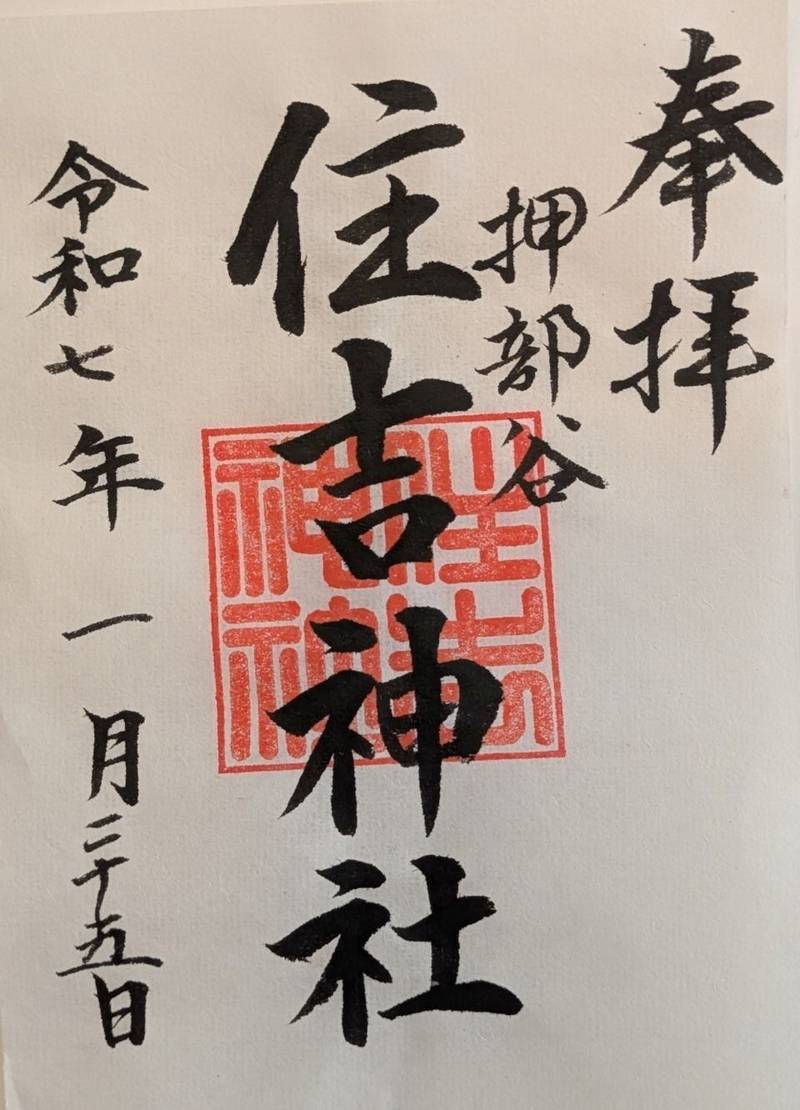 奉拝
押部谷
住吉神社
令和七年一月二十五日
住吉
神社